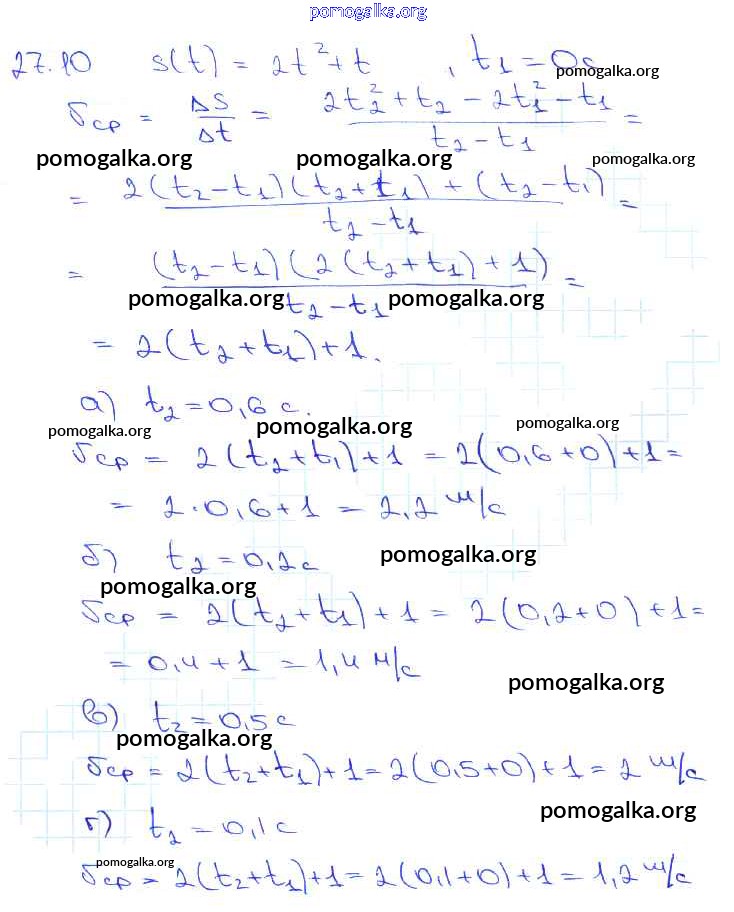 pomogalka.org
27.10 s(t) = 2t² + t, t₁ = 0с
pomogalka.org
υср = ΔS/Δt = (2t₂² + t₂ - 2t₁² - t₁)/(t₂ - t₁) =
pomogalka.org pomogalka.org pomogalka.org
= (2(t₂ - t₁)(t₂ + t₁) + (t₂ - t₁))/(t₂ - t₁) =
= ((t₂ - t₁)(2(t₂ + t₁) + 1))/(t₂ - t₁) =
pomogalka.org pomogalka.org
= 2(t₂ + t₁) + 1.
а) t₂ = 0,6 с.
pomogalka.org pomogalka.org pomogalka.org
υср = 2(t₂ + t₁) + 1 = 2(0,6 + 0) + 1 =
= 2·0,6 + 1 = 2,2 м/с
б) t₂ = 0,2с
pomogalka.org
pomogalka.org
υср = 2(t₂ + t₁) + 1 = 2(0,2 + 0) + 1 =
= 0,4 + 1 = 1,4 м/с
pomogalka.org
в) t₂ = 0,5 с
pomogalka.org
υср = 2(t₂ + t₁) + 1 = 2(0,5 + 0) + 1 = 2 м/с
pomogalka.org
г) t₂ = 0,1 с
pomogalka.org
υср = 2(t₂ + t₁) + 1 = 2(0,1 + 0) + 1 = 1,2 м/с